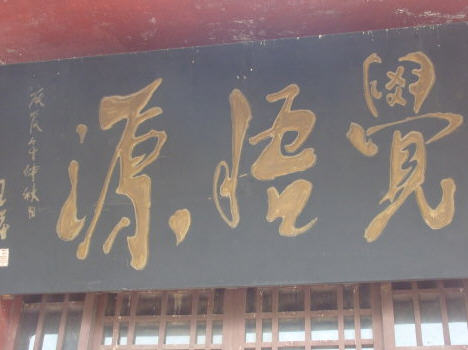 覺悟源
庚辰年仲秋日